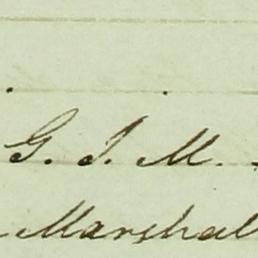 G. I. M.
Marshal